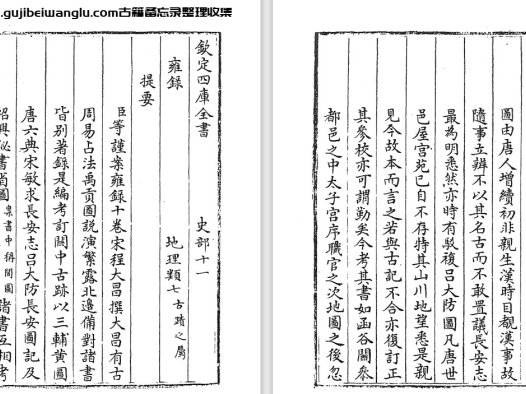 .gujibeiwanglu.com古籍备忘录整理收集
欽定四庫全書 史部十一
雍錄 地理類七 古蹟之屬
提要
臣等謹案雍錄十卷宋程大昌撰大昌有古
周易占法禹貢圖說演繁露北邊備對諸書
皆別著錄是編考訂關中古跡以三輔黃圖
唐六典宋敏求長安志呂大防長安圖記及
紹興秘書省圖案書中稱閣圖諸書互相考
圖由唐人增續初非親生漢時目覩漢事故
隨事立辨不以其名古而不敢置議長安志
最為明悉然亦時有駁複呂大防圖凡唐世
邑屋宮苑已自不存特其山川地望悉是親
見今故本而言之若與古記不合亦復訂正
其參校亦可謂勤矣今考其書如函谷關參
都邑之中太子宮序職官之次地圖之後忽